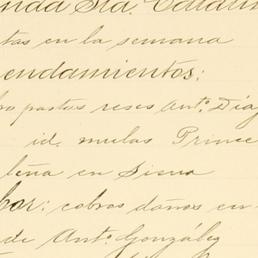 nda Sta. Catalin
tas en la semana
endamientos:
ro pastas reses Ant.º Díaz
id. mulas Prince
leña en
bor: cobros daños en
de Ant.º González